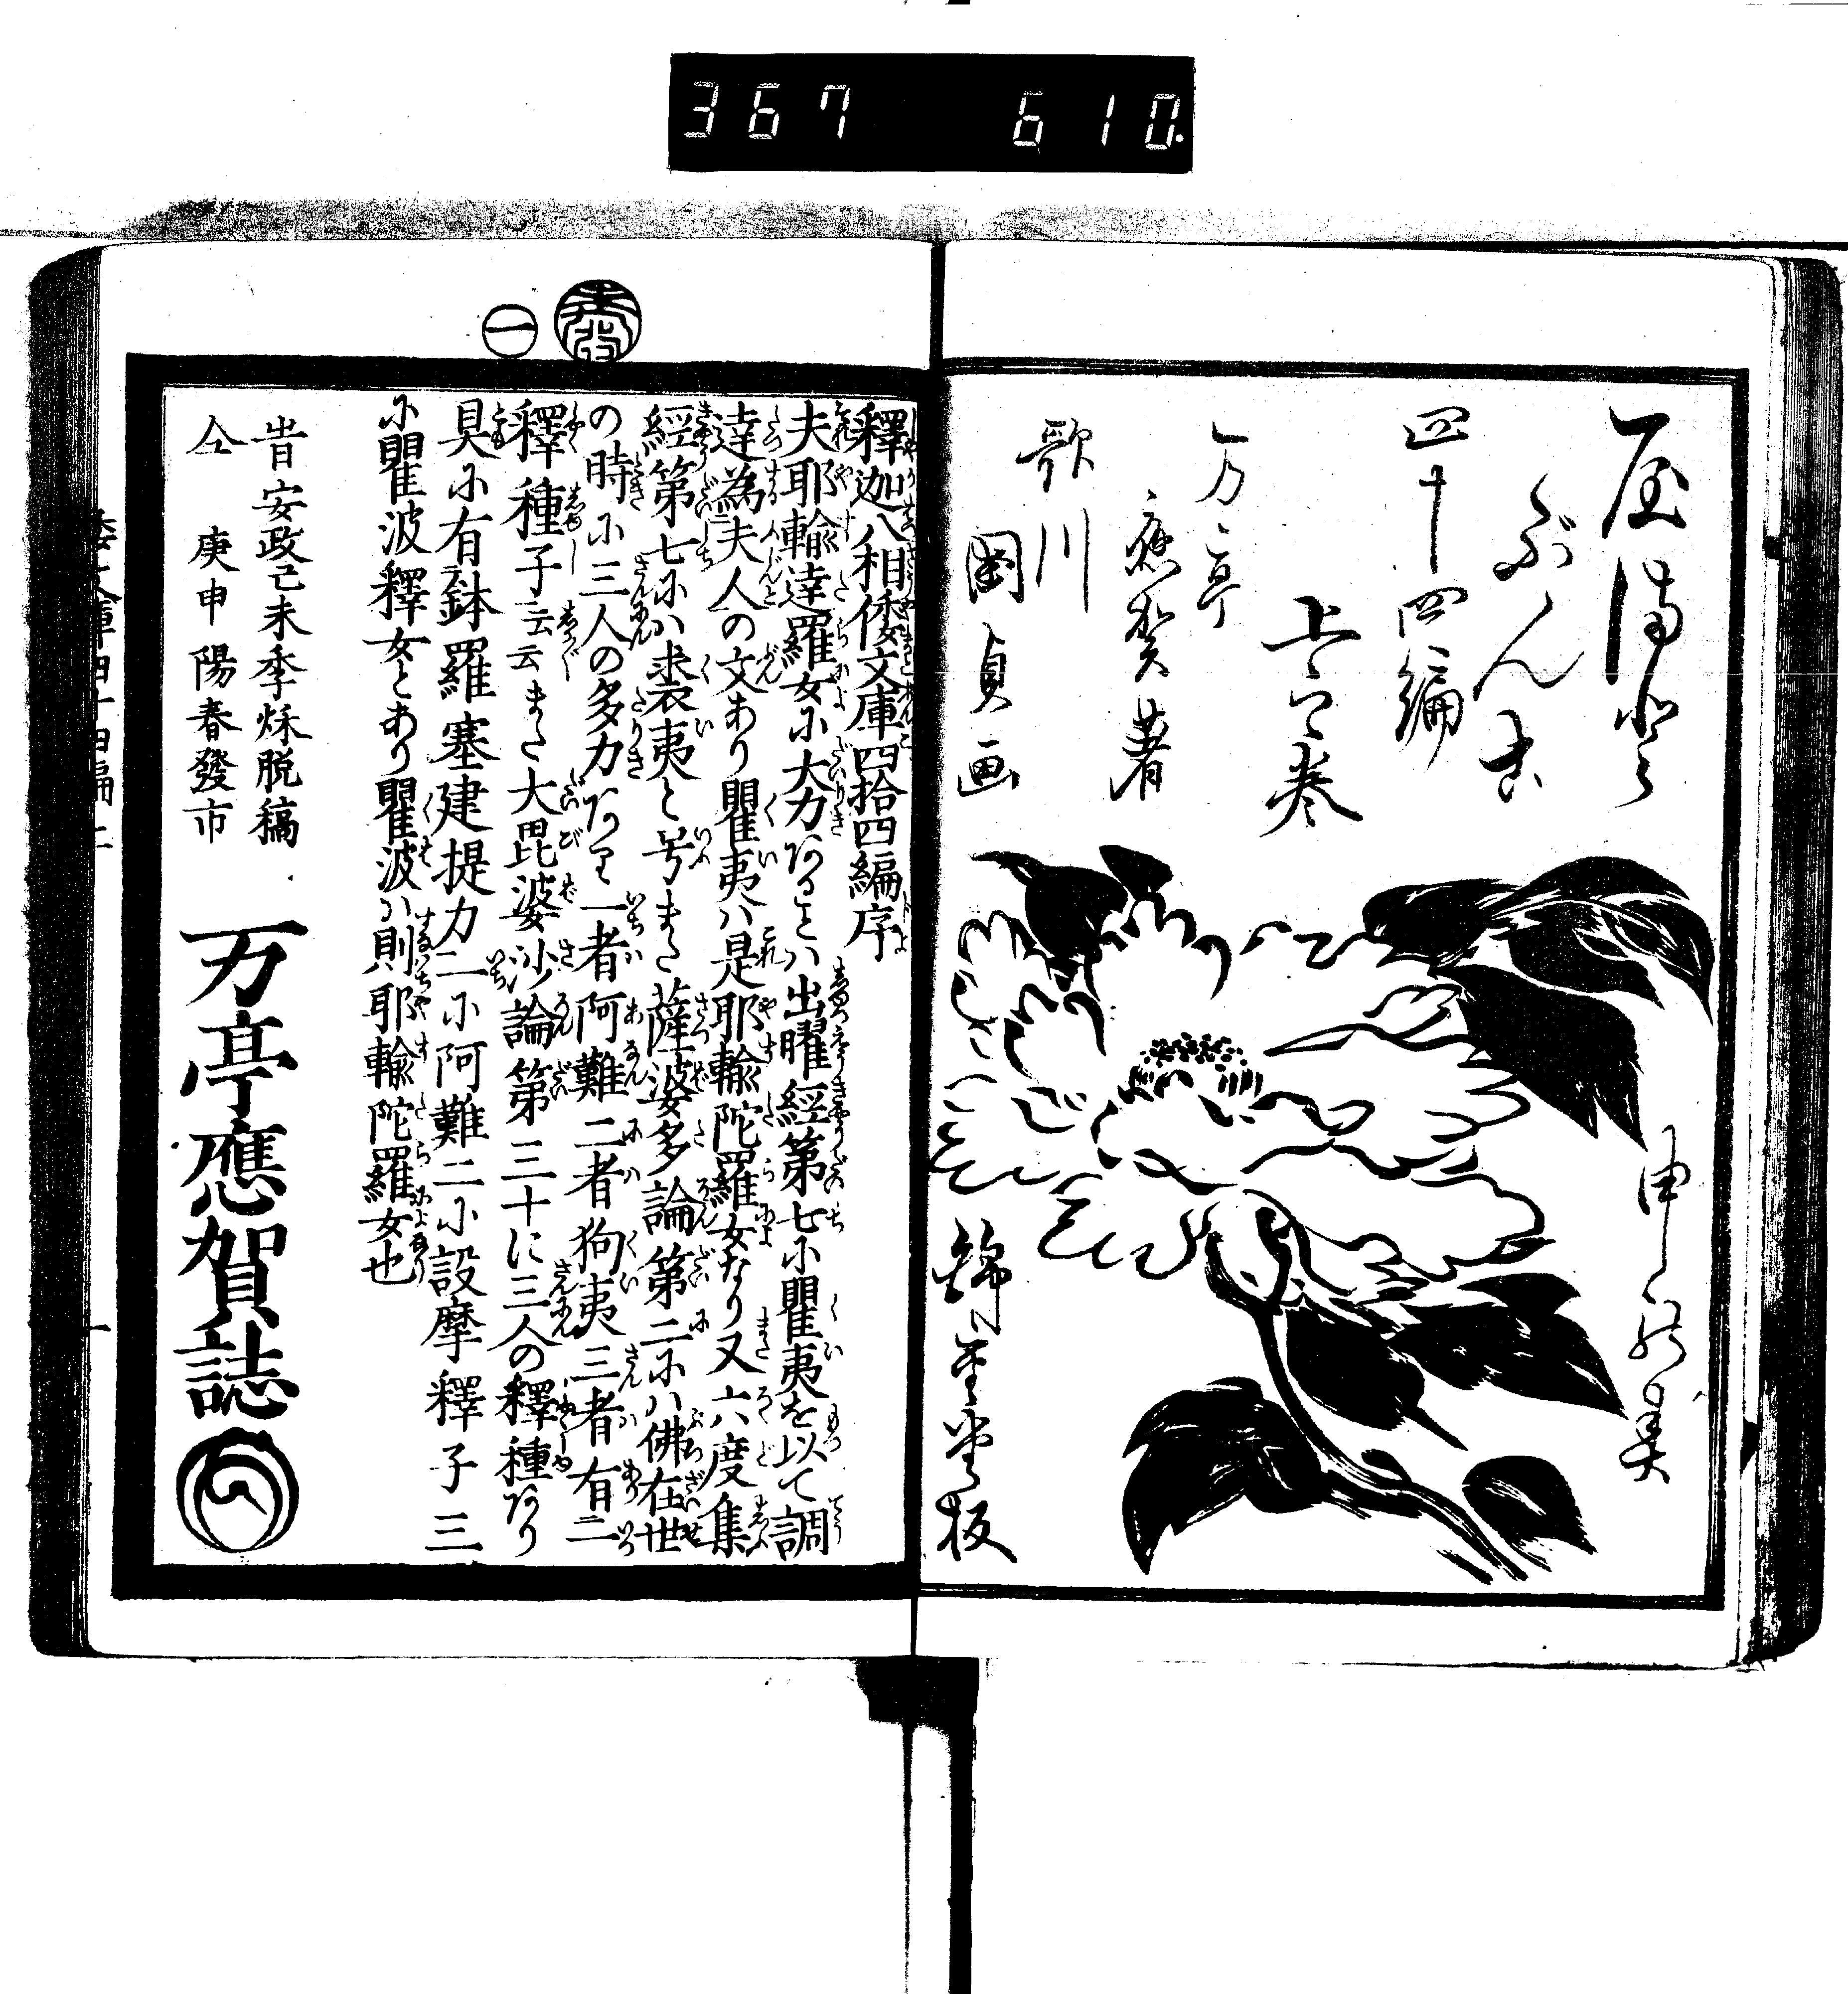 367 610
屋満登
ぶんこ
四十四編
上之巻
万亭
應賀著
歌川
國貞画
申新春
錦重堂板
釋迦八相倭文庫四拾四編序
夫耶輸達羅女小大力あること八出曜經第七小瞿夷を以て調
達為夫人の文あり瞿夷ハ是耶輸陀羅女なり又六度集
經第七小ハ裘夷と号また薩婆多論第二小ハ佛在世
の時小三人の多力あり一者阿難二者狗夷三者有二
釋種子云云また大毘婆沙論第三十に三人の釋種あり
具小有鉢羅塞建提力一小阿難二小設摩釋子三
小瞿波釋女とあり瞿波ハ則耶輸陀羅女也
昔安政己未季秌脱稿
仝 庚申陽春發市
万亭應賀誌
一
倭文庫四十四編上
一